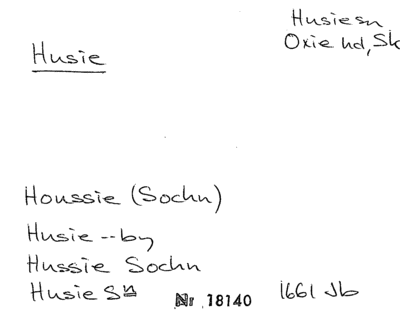 Husie
Husie sn
Oxie hd, Sk
Houssie (Sochn)
Husie -- by
Hussie Sochn
Husie Sn Nr 18140 1661 Jb